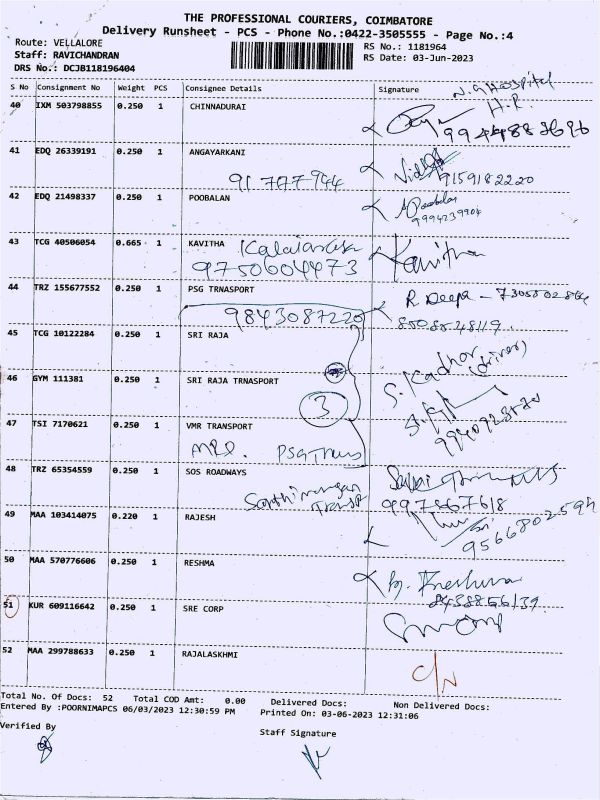 THE PROFESSIONAL COURIERS, COIMBATORE
Delivery Runsheet - PCS - Phone No.:0422-3505555 - Page No.:4
Route: VELLALORE
RS No.: 1181964
Staff: RAVICHANDRAN
RS Date: 03-Jun-2023
DRS No.: DCJB118196404
S No Consignment No Weight PCS Consignee Details Signature
N.G Hospital
H.R
40 IXM 503798855 0.250 1 CHINNADURAI
41 EDQ 26339191 0.250 1 ANGAYARKANI
91 777 944 9159182220
42 EDQ 21498337 0.250 1 POOBALAN
9994239904
43 TCG 40506054 0.665 1 KAVITHA Kavitha
9750604473
44 TRZ 155677552 0.250 1 PSG TRNASPORT R Deepa -
9843087220 8508548119
45 TCG 10122284 0.250 1 SRI RAJA
46 GYM 111381 0.250 1 SRI RAJA TRNASPORT
3
47 TSI 7170621 0.250 1 VMR TRANSPORT
PSG Trans
48 TRZ 65354559 0.250 1 SOS ROADWAYS
49 MAA 103414075 0.220 1 RAJESH
9566802594
50 MAA 570776606 0.250 1 RESHMA
8438856139
51 KUR 609116642 0.250 1 SRE CORP
52 MAA 299788633 0.250 1 RAJALASKHMI
C/N
Total No. Of Docs: 52 Total COD Amt: 0.00 Delivered Docs: Non Delivered Docs:
Entered By :POORNIMAPCS 06/03/2023 12:30:59 PM Printed On: 03-06-2023 12:31:06
Verified By
Staff Signature